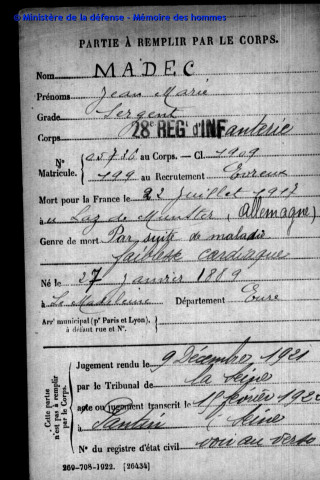 © Ministère de la défense - Mémoire des hommes
PARTIE À REMPLIR PAR LE CORPS.
Nom MADEC
Prénoms Jean Marie
Grade Sergent
Corps 28e REGt d'INFanterie
N° 05736 au Corps. — Cl. 1909
Matricule. 199 au Recrutement Evreux
Mort pour la France le 22 Juillet 1917
à u Laz de Munster, (Allemagne)
Genre de mort Par suite de maladie
faiblesse cardiaque
Né le 27 Janvier 1889
à La Madeleine Département Eure
Arrt municipal (pr Paris et Lyon),
à défaut rue et N°.
Cette partie
n'est pas à remplir
par le Corps.
Jugement rendu le 9 Décembre 1921
par le Tribunal de la Seine
acte ou jugement transcrit le février
Pantin Seine
N° du registre d'état civil voir au verso
269-708-1922. [26434]